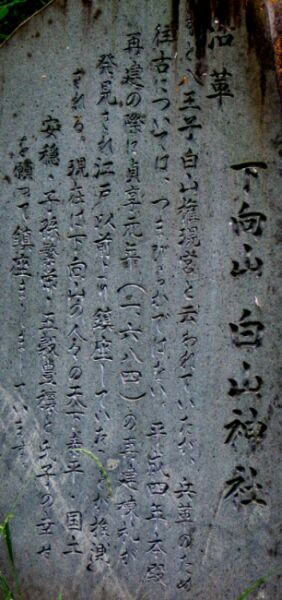 下向山 白山神社
沿革
もと、王子白山権現宮と云われていたが、兵革のため
往古については、つまびらかではない、平成四年本殿
再建の際に貞享元年(一六八四)の再建棟札が
発見され江戸以前より鎮座していたことが推測
される。現在は下向山の人々の天下泰平・国土
安穏・子孫繁栄・五穀豊穣と氏子の幸せ
を願って鎮座ましましています